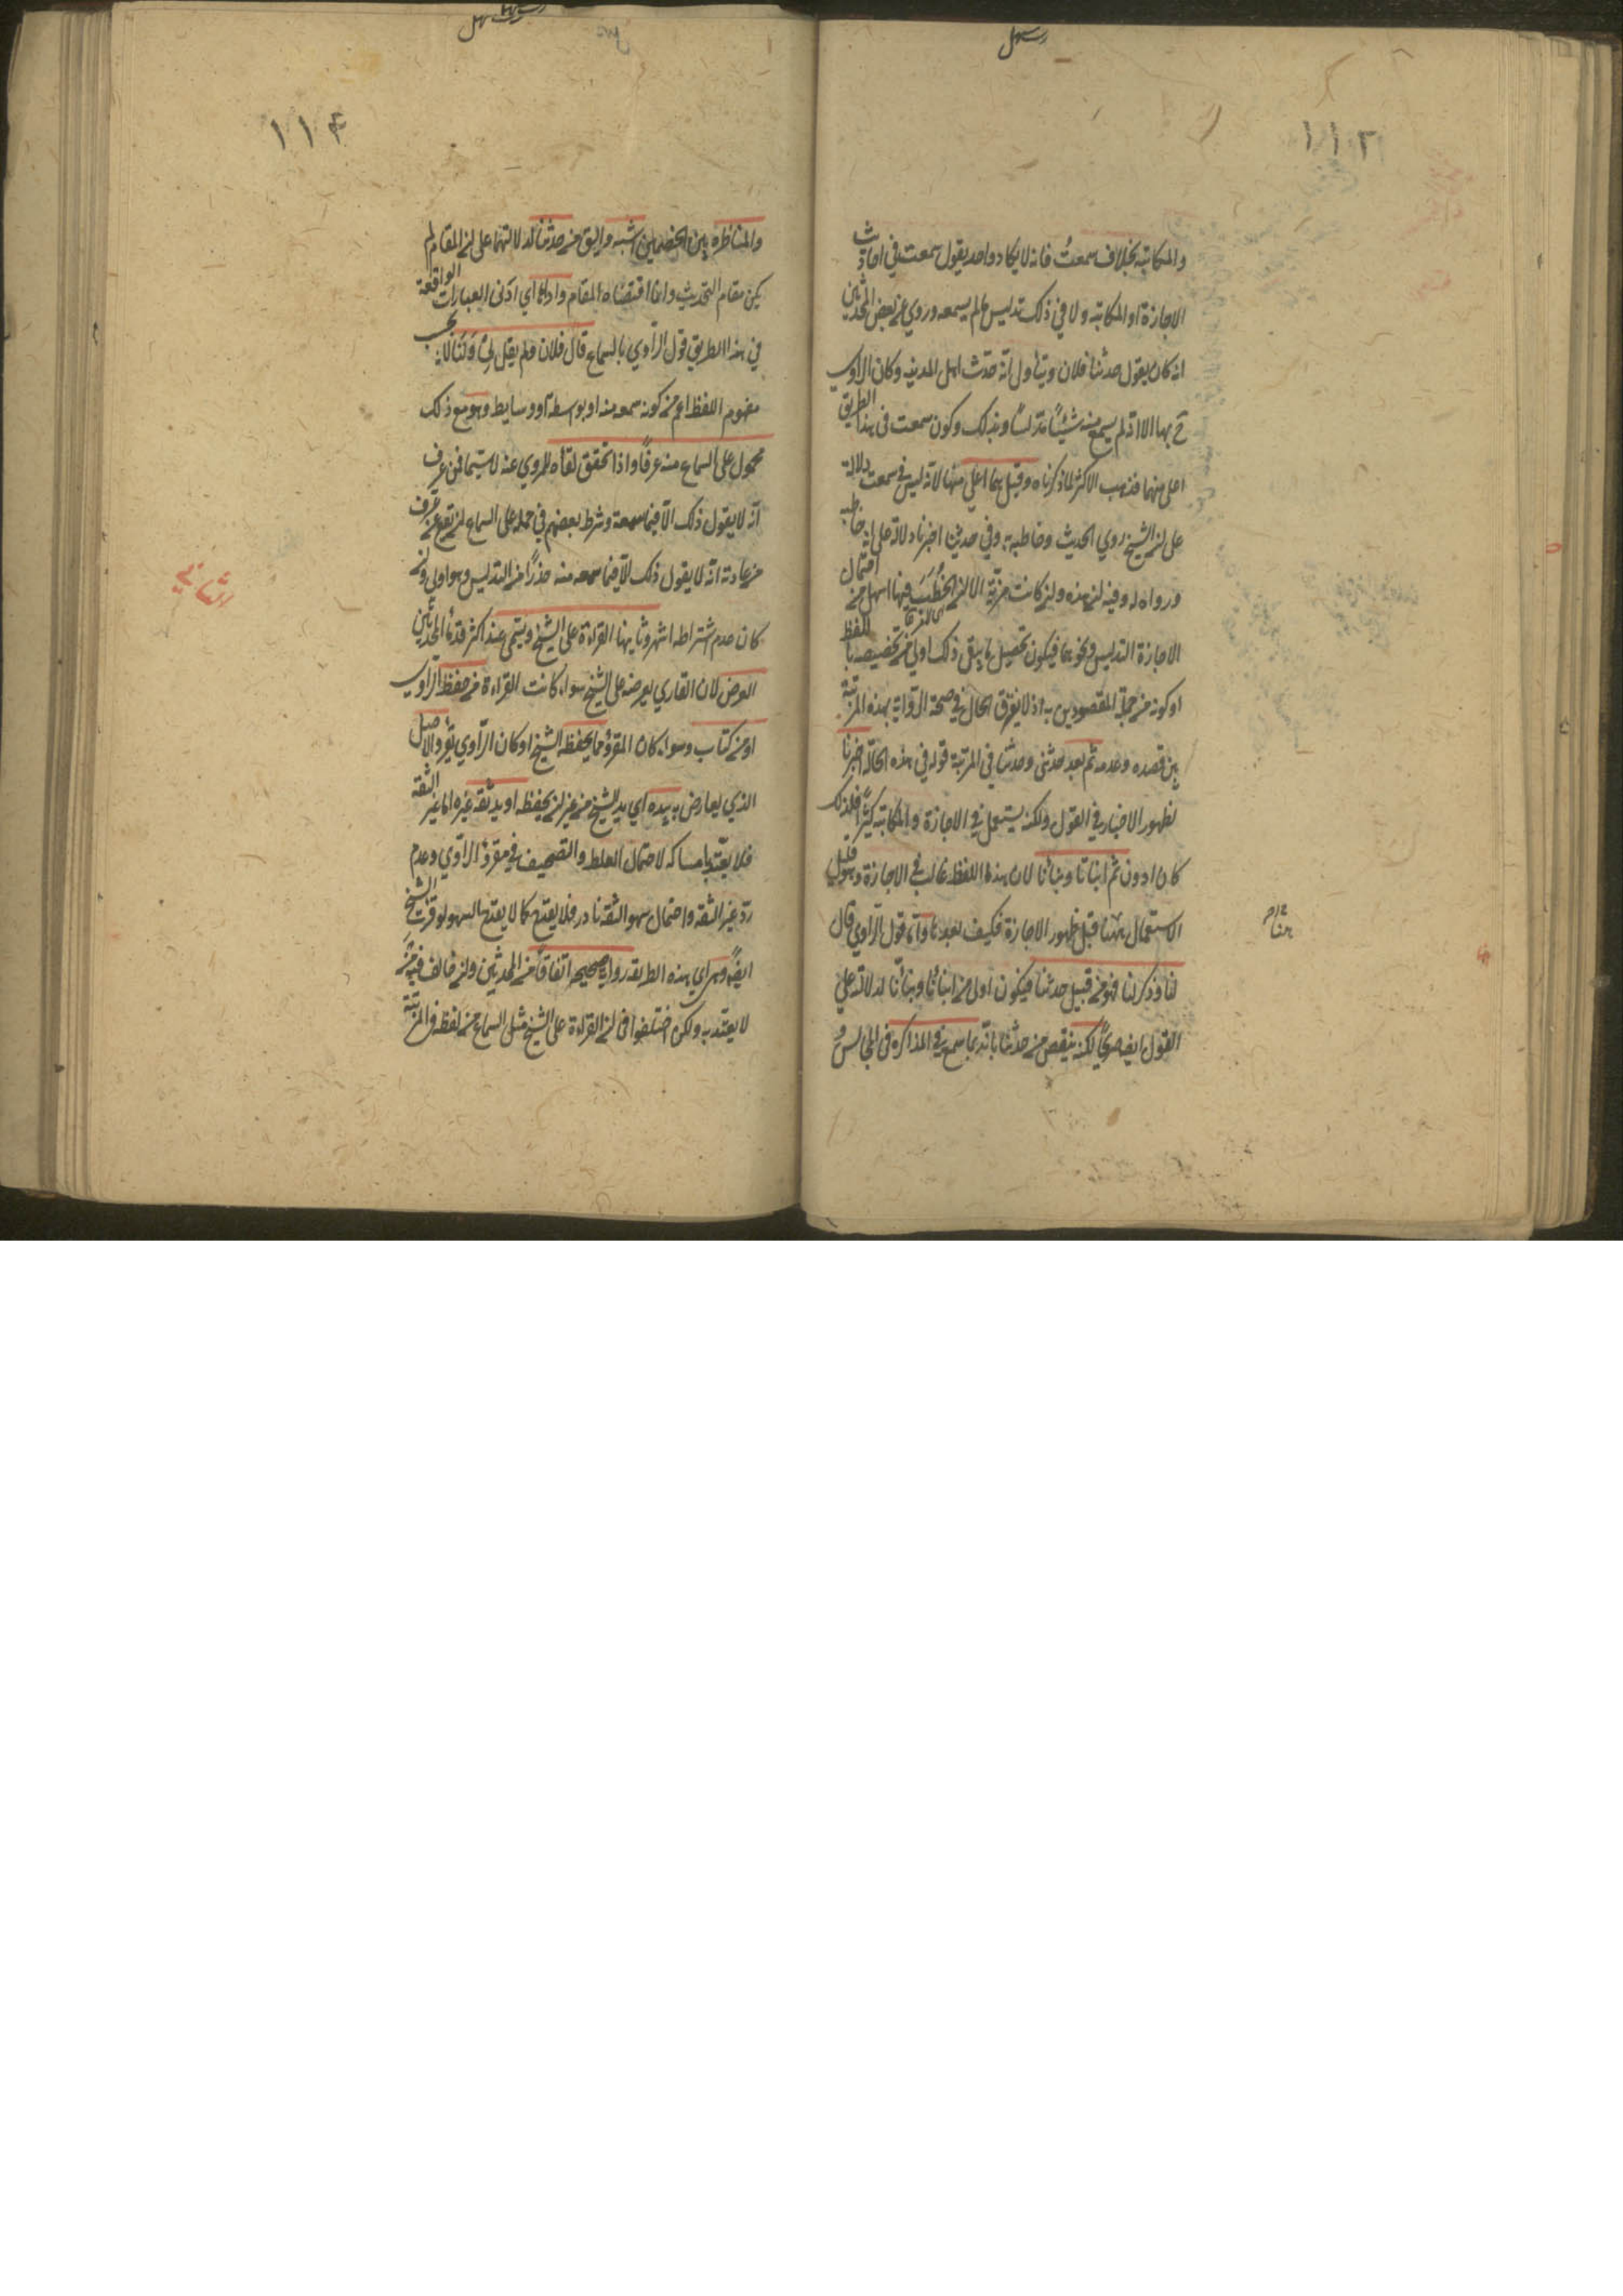 رسهل
١١٣
والمكاتبة بخلاف سمعتُ فانه لا يكاد واحد يقول سمعت في احاديث
الاجازة او المكاتبة ولا في ذلك تدليس عالم يسمعه وروي عن بعض المحدثين
انه كان يقول حدثنا فلان ويتأول انه حدث اهل المدينه وكان الراوي
ح بها الا انه لم يسمع منه شيئًا مدلسًا وبذلك وكون سمعت فى هذا الطريق
اعلى منهما مذهب الاكثر لما ذكرناه وقيل هما اعلى منها لانه ليس في سمعت دلالة
على ان الشيخ روي الحديث وخاطبه به وفي حدثنا اخبرنا دلالة على انه خاطبه
ورواه له وفيه ان هذه وان كانت مزيّة الا ان الخطب فيها اسهل من احتمال
الاجازة التدليس ونحوهما فيكون تحصيل ما ينفى ذلك اولى من تخصيصه باللفظ
او كونه من جملة المقصودين به اذ لا يفرق الحال في صحة الرواية بهذه المزية
بين قصده وعدمه ثم بعد حدثنى وحدثنا في المرتبة قوله في هذه الحالة اخبرنا
لظهور الاخبار في القول ولكنه يستعمل في الاجازة والمكاتبة كثيرًا فلذلك
كان ادون ثم انبانا ونبانا لان هذا اللفظ غالب في الاجازة وهو قليل
الاستعمال ههنا قبل ظهور الاجازة فكيف بعدها واما قول الراوي قال
لنا وذكر لنا فهو من قبيل حدثنا فيكون اولى من انبانا ونبانا لدلالته على
القول ايضا صريحًا لكنه ينقص من حدثنا بانه ربما سمع في المذاكرة فى المجالس و
هنا
١١٤
والمناظرة بين الخصمين اشبه واليق من حدثنا لدلالتهما على ان المقام لم
يكن مقام التحديث وانما اقتضاه المقام وادناها اي ادنى العبارات الواقعة
في هذا الطريق قول الراوي بالسماع قال فلان ولم يقل لي او لنا لانه بحسب
مفهوم اللفظ اعم من كونه سمعه منه او بواسطة او وسايط وهو مع ذلك
محمول على السماع منه عرفًا واذا تحقق لقاه للمروي عنه لا سيما فمن عرف
انه لا يقول ذلك الا فيما سمعه وشرط بعضهم في حمله على السماع ان يقع ممن عرف
من عادته انه لا يقول ذلك الا فيما سمعه منه حذرًا من التدليس وهو اولى وان
كان عدم اشتراطه اشهر وثانيها القراءة على الشيخ ويسمى عند اكثر قدماء المحدثين
العرض لان القاري يعرضه على الشيخ سواء كانت القراءة من حفظ الراوي
او من كتاب وسواء كان المقروء مما يحفظه الشيخ او كان الراوي يقرء والاصل
الذي يعارض به بيده اي يد الشيخ من غير ان يحفظه او يد ثقه غيره اما غير الثقة
فلا يعتد بامساكه لاحتمال الغلط والتصحيف في مقروء الراوي وعدم
رد غير الثقه واحتمال سهو الثقه نادر فلا يقدح كما لا يقدح السهو لو قرء الشيخ
ايضًا وهي اي هذه الطريقه رواية صحيحه اتفاقًا من المحدثين وان خالف فيه من
لا يعتد به ولكن اختلفوا فى ان القراءة على الشيخ مثل السماع من لفظه في المرتبة
الثاني